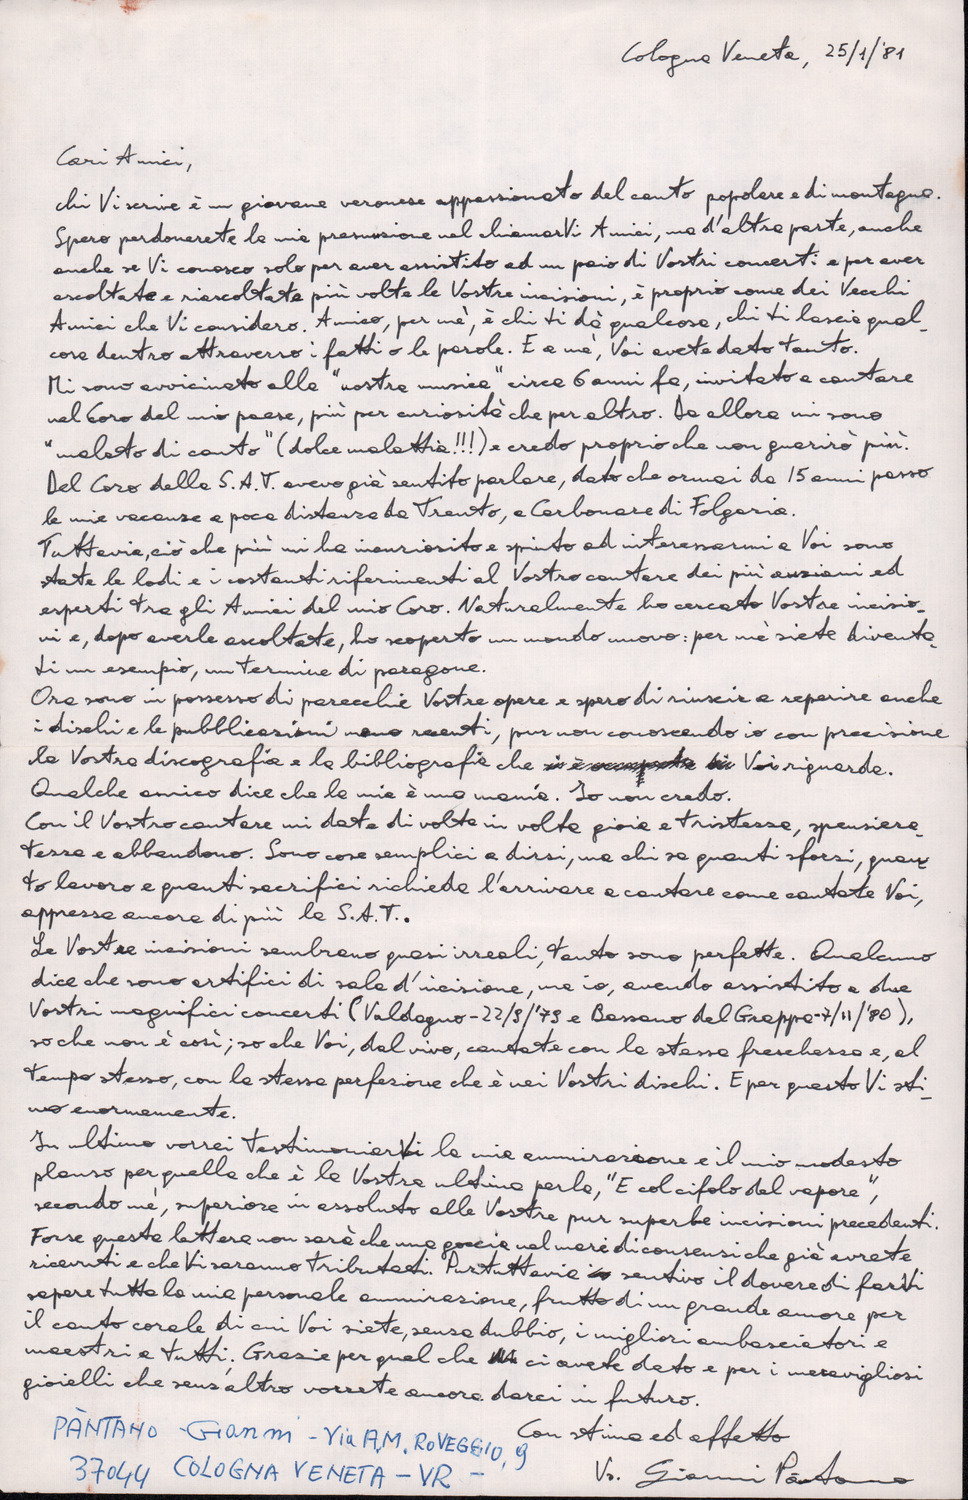 Cologna Veneta, 25/1/'81
Cari Amici,
chi Vi scrive è un giovane veronese appassionato del canto popolare e di montagna.
Spero perdonerete la mia presunzione nel chiamarVi Amici, ma d'altra parte, anche
anche se Vi conosco solo per aver assistito ad un paio di Vostri concerti e per aver
ascoltate e riascoltate più volte le Vostre incisioni, è proprio come dei Vecchi
Amici che Vi considero. Amico, per mè, è chi ti dà qualcosa, chi ti lascia qual_
cosa dentro attraverso i fatti o le parole. E a mè, Voi avete dato tanto.
Mi sono avvicinato alla "nostra musica" circa 6 anni fa, invitato a cantare
nel Coro del mio paese, più per curiosità che per altro. Da allora mi sono
"malato di canto" (dolce malattia!!!) e credo proprio che non guarirò più.
Del Coro della S.A.T. avevo già sentito parlare, dato che ormai da 15 anni passo
le mie vacanze a poca distanza da Trento, a Carbonare di Folgaria.
Tuttavia, ciò che più mi ha incuriosito e spinto ad interessarmi a Voi sono
state le lodi e i costanti riferimenti al Vostro cantare dei più anziani ed
esperti tra gli Amici del mio Coro. Naturalmente ho cercato Vostre incisio_
ni e, dopo averle ascoltate, ho scoperto un mondo nuovo: per mè siete diventa_
ti un esempio, un termine di paragone.
Ora sono in possesso di parecchie Vostre opere e spero di riuscire a reperire anche
i dischi e le pubblicazioni meno recenti, pur non conoscendo io con precisione
la Vostra discografia e la bibliografia che Voi riguarda.
Qualche amico dice che la mia è una mania. Io non credo.
Con il Vostro cantare mi date di volta in volta gioia e tristezza, spensiera_
tezza e abbandono. Sono cose semplici a dirsi, ma chi sa quanti sforzi, quan
to lavoro e quanti sacrifici richieda l'arrivare a cantare come cantate Voi,
apprezza ancora di più la S.A.T..
Le Vostre incisioni sembrano quasi irreali, tanto sono perfette. Qualcuno
dice che sono artifici di sala d'incisione, ma io, avendo assistito a due
Vostri magnifici concerti (Valdagno-22/9/'79 e Bassano del Grappa-7/11/'80),
so che non è così; so che Voi, dal vivo, cantate con la stessa freschezza e, al
tempo stesso, con la stessa perfezione che è nei Vostri dischi. E per questo Vi sti_
mo enormemente.
In ultimo vorrei testimoniarVi la mia ammirazione e il mio modesto
plauso per quella che è la Vostra ultima perla, "E col cifolo del vapore",
secondo mè, superiore in assoluto alle Vostre pur superbe incisioni precedenti.
Forse questa lettera non sarà che una goccia nel mare di consensi che già avrete
ricevuti e che Vi saranno tributati. Purtuttavia sentivo il dovere di farVi
sapere tutta la mia personale ammirazione, frutto di un grande amore per
il canto corale di cui Voi siete, senza dubbio, i migliori ambasciatori e
maestri a tutti. Grazie per quel che ci avete dato e per i meravigliosi
gioielli che senz'altro vorrete ancora darci in futuro.
Con stima ed affetto
Vs. Gianni Pàntano
PÀNTANO - Gianni - Via A.M. ROVEGGIO, 9
37044 COLOGNA VENETA - VR -